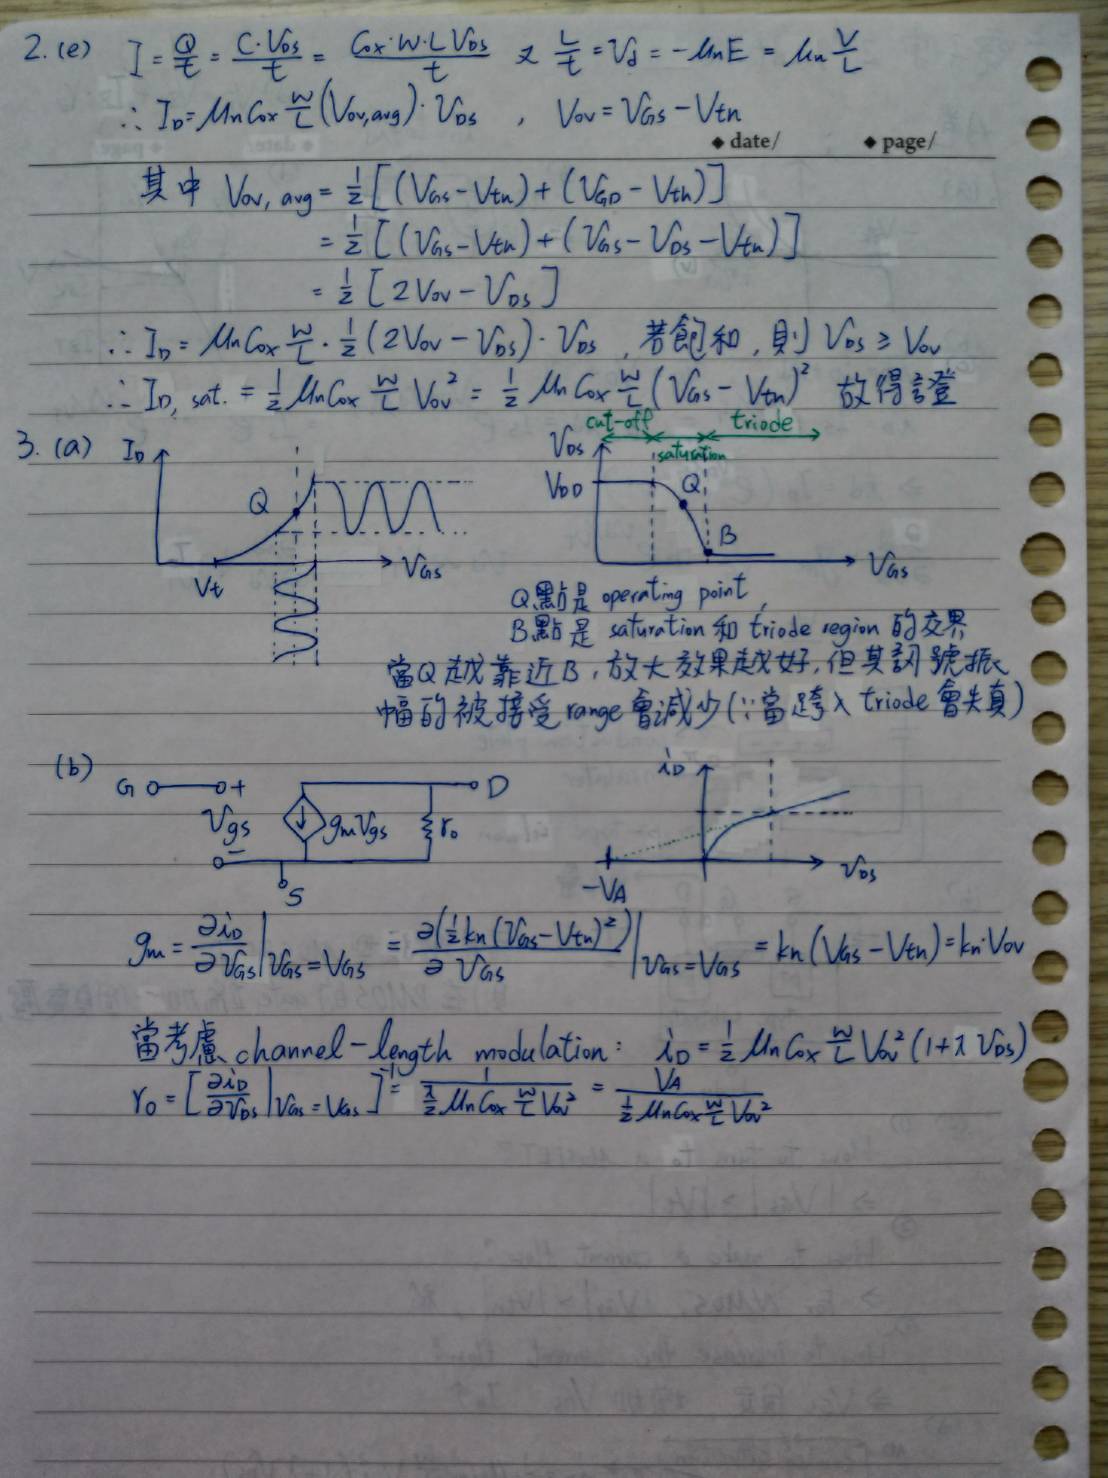 2.(e) I = Q/t = C·V_DS/t = Cox·W·L V_DS/t 又 L/t = V_d = -μnE = μn V/L
∴ I_D = μnCox W/L (Vov,avg)·V_DS , Vov = V_GS - Vtn
◆ date/ ◆ page/
其中 Vov, avg = 1/2 [(V_GS - Vtn) + (V_GD - Vtn)]
= 1/2 [(V_GS - Vtn) + (V_GS - V_DS - Vtn)]
= 1/2 [2Vov - V_DS]
∴ I_D = μnCox W/L · 1/2 (2Vov - V_DS)·V_DS , 若飽和, 則 V_DS ≥ Vov
∴ I_D, sat. = 1/2 μnCox W/L Vov² = 1/2 μnCox W/L (V_GS - Vtn)² 故得證
3. (a) I_D Q Vt V_GS
cut-off saturation triode
V_DS V_DD Q B V_GS
Q點是 operating point,
B點是 saturation 和 triode region 的交界
當Q越靠近B, 放大效果越好, 但其訊號振
幅的被接受 range 會減少 (∵當跨入 triode 會失真)
(b) G + Vgs - gmVgs ro D S
i_D -V_A V_DS
gm = ∂i_D/∂V_GS |V_GS=V_GS = ∂(1/2 kn (V_GS - Vtn)²)/∂V_GS |V_GS=V_GS = kn(V_GS - Vtn) = kn·Vov
當考慮 channel-length modulation: i_D = 1/2 μnCox W/L Vov² (1+λV_DS)
ro = [∂i_D/∂V_DS |V_GS=V_GS]⁻¹ = 1/(λ/2 μnCox W/L Vov²) = V_A/(1/2 μnCox W/L Vov²)